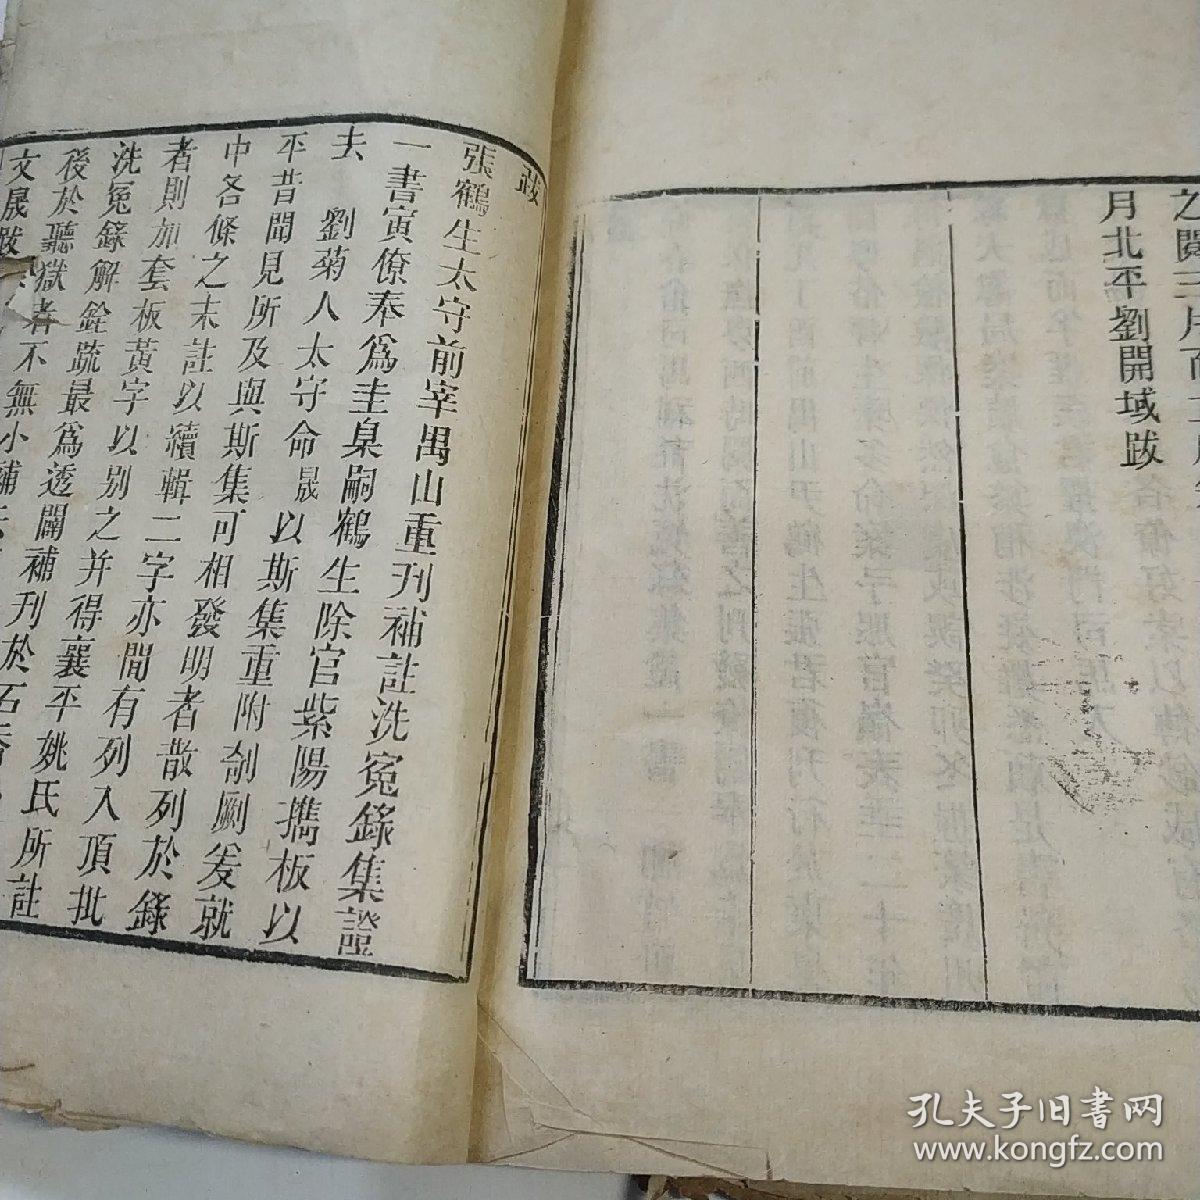 月北平劉開域跋
跋
張鶴生太守前宰禺山重刊補註洗冤錄集證
一書寅僚奉爲圭臬嗣鶴生除官紫陽攜板以
去 劉菊人太守命晟以斯集重附剞劂爰就
平昔聞見所及與斯集可相發明者散列於錄
中各條之末註以續輯二字亦間有列入頂批
者則加套板黃字以别之并得襄平姚氏所註
洗冤錄解銓疏最爲透闢補刊於
後於聽獄者不無小補
文晟跋
孔夫子旧书网
www.kongfz.com